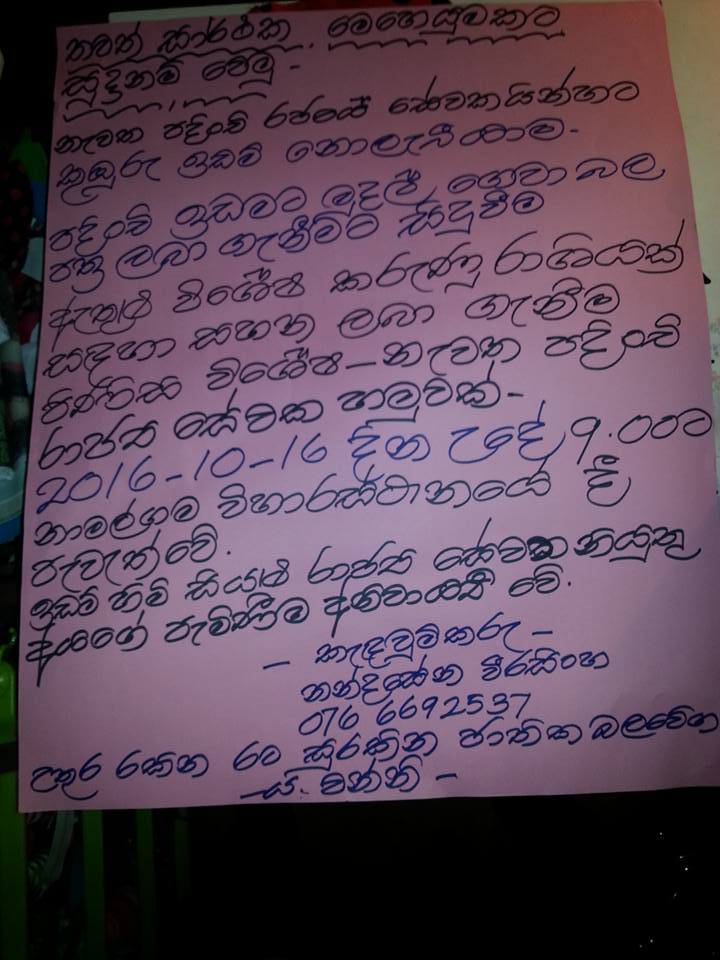 තවත් සාර්ථක මෙහෙයුමකට
සූදානම් වෙමු -
නැවත පදිංචි රජයේ සේවකයින්හට
කුඹුරු ඉඩම් නොලැබීයාම -
පදිංචි ඉඩමට මුදල් ගෙවා බල
පත්‍ර ලබා ගැනීමට සිදුවීම
ඇතුළු විශේෂ කරුණු රාශියක්
සඳහා සහන ලබා ගැනීම
පිණිස විශේෂ – නැවත පදිංචි
රාජ්‍ය සේවක හමුවක් -
2016-10-16 දින උදේ 9.00ට
නාමල්ගම විහාරස්ථානයේ දී
පැවැත්වේ.
ඉඩම් හිමි සියළු රාජ්‍ය සේවක නියුතු
අයගේ පැමිණීම අනිවාර්යයි වේ.
– කැඳවුම්කරු –
නන්දසේන වීරසිංහ
076 6692537
උතුර රකින රට සුරකින ජාතික බලවේග
– ය. වන්නි –